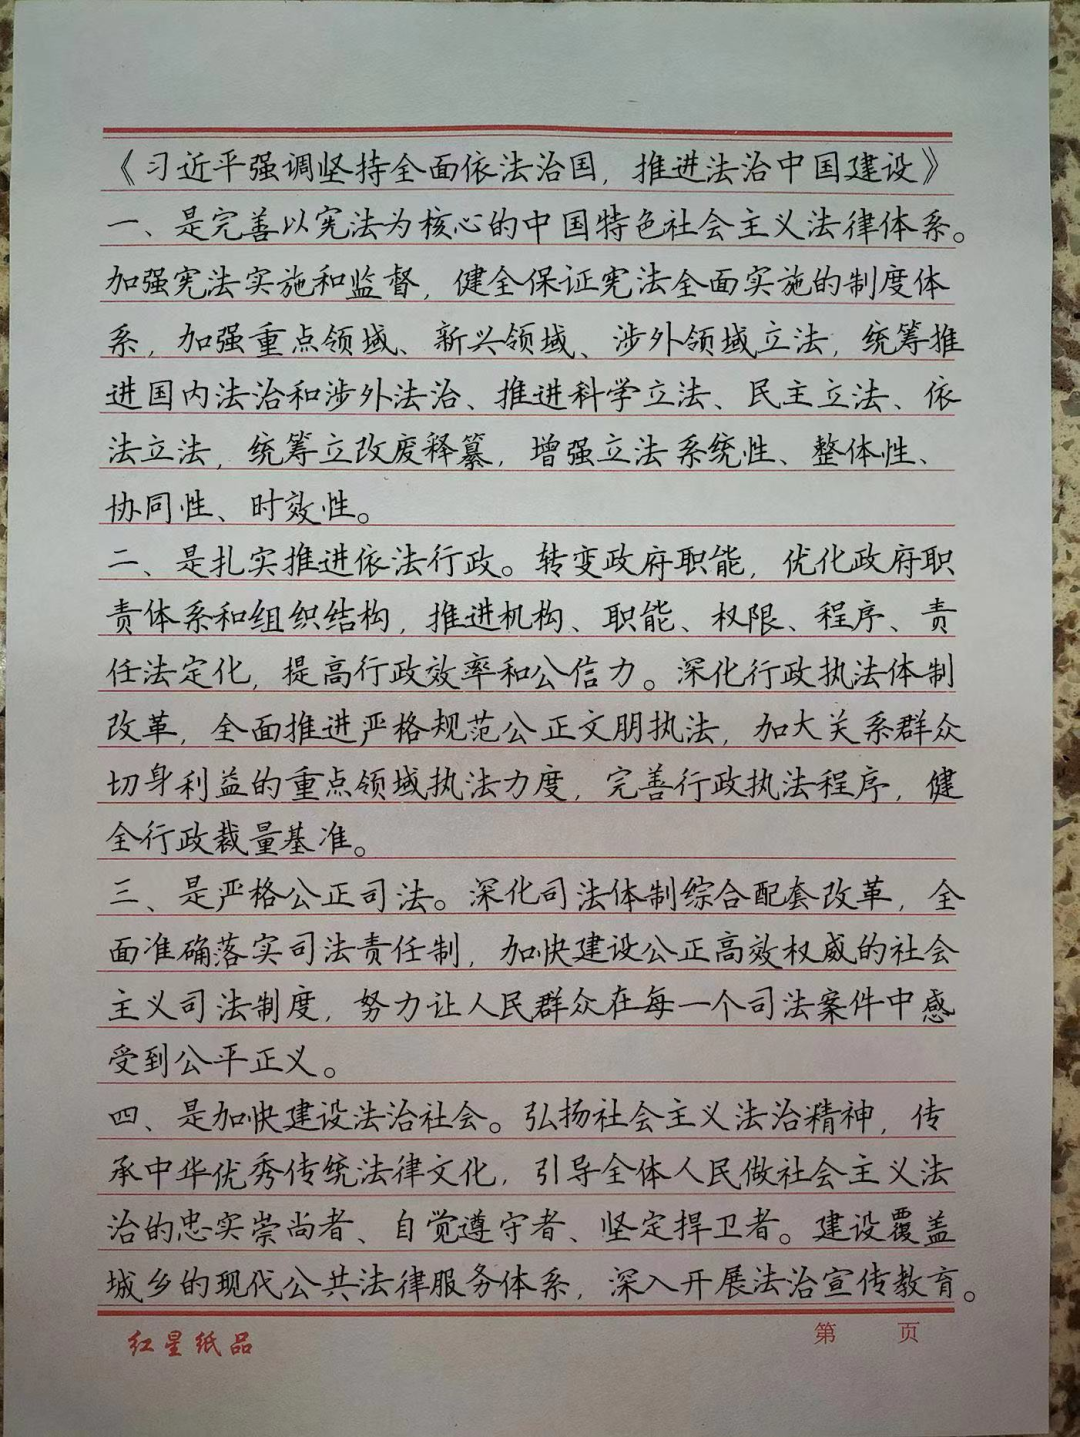 《习近平强调坚持全面依法治国，推进法治中国建设》
一、是完善以宪法为核心的中国特色社会主义法律体系。
加强宪法实施和监督，健全保证宪法全面实施的制度体
系，加强重点领域、新兴领域、涉外领域立法，统筹推
进国内法治和涉外法治、推进科学立法、民主立法、依
法立法，统筹立改废释纂，增强立法系统性、整体性、
协同性、时效性。
二、是扎实推进依法行政。转变政府职能，优化政府职
责体系和组织结构，推进机构、职能、权限、程序、责
任法定化，提高行政效率和公信力。深化行政执法体制
改革，全面推进严格规范公正文明执法，加大关系群众
切身利益的重点领域执法力度，完善行政执法程序，健
全行政裁量基准。
三、是严格公正司法。深化司法体制综合配套改革，全
面准确落实司法责任制，加快建设公正高效权威的社会
主义司法制度，努力让人民群众在每一个司法案件中感
受到公平正义。
四、是加快建设法治社会。弘扬社会主义法治精神，传
承中华优秀传统法律文化，引导全体人民做社会主义法
治的忠实崇尚者、自觉遵守者、坚定捍卫者。建设覆盖
城乡的现代公共法律服务体系，深入开展法治宣传教育。
红星纸品 第 页